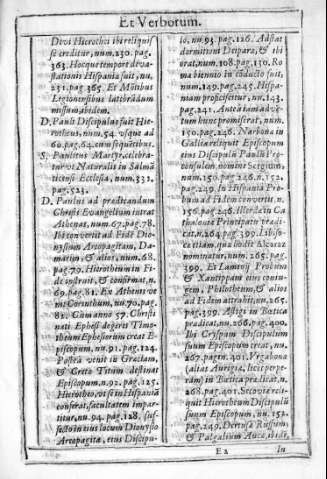 Et Verborum.
Divi Hierothei ibi reliquis-
se creditur, num. 230. pag.
363. Hoc que tempore deva-
stationis Hispania fuit, nu.
231. pag. 365. Et Motibus
Legionensibus latibrādum
missum abidem.
D. Pauli Discipulus fuit Hie-
rotheus, num. 54. usque ad
60. pag. 64. cum sequētibus.
S. Paulinus Martyr, celebra-
tur vt Naturalis in Salmā
ticensi Ecclesia, num. 332.
pag. 523.
D. Paulus ad prædicandum
Christi Evangelium intrat
Athenas, num. 67. pag. 78.
Ibi convertit ad Fidē Dio-
nysium Areopagitam, Da-
marim, & alios, num. 68.
pag. 79. Hierotheum in Fi-
de instruit, & confirmat, n.
69. pag. 81. Ex Athenis ve-
nit Corinthum, nu. 70. pag.
82. Cum anno 57. Christi
nati Ephesi degeret Timo-
theum Ephesinum creat E-
piscopum, nu. 91. pag. 124.
Postea venit in Græciam,
& Creta Titum destinat
Episcopum, n. 92. pag. 125.
Hierotheo, vt se in Hispaniā
conferat, facultatem impar-
titur, nu. 94. pag. 128. suf-
fecto in eius locum Dionysio
Areopagita, eius Discipu-
lo, nu. 93. pag. 126. Adstat
dormitioni Deiparæ, & ibi
orat, num. 108. pag. 130. Ro
ma biennio in cōducto fuit,
num. 149. pag. 245. Hispa-
niam proficiscitur, nu. 143.
pag. 241. Autea tamē ad vē-
tum hunc promiserat, num.
150. pag. 246. Narbona in
Gallia reliquit Episcopum
eius Discipulū Paulū Pro-
consulem nomine Sergium,
num. 150. pag. 246. n. 152.
pag. 249. In Hispania Pro-
bum ad Fidem convertit, n.
150. pag. 246. Illerda in Ca
thalonia Principatu prædi-
cat, n. 264. pag. 399. Libiso-
ce etiam, quæ hodie Alcoroz
nominatur, num. 265. pag.
399. Et Laminij Probum
& Xantippam eius coniu-
gem, Philotheum, & alios
ad Fidem attrahit, nu. 265.
pag. 399. Astigi in Bætica
prædicat, nu. 266. pag. 400.
Ibi Cryspum Discipulum
suum Episcopum creat, nu.
267. pagin. 401. Vrgabona
(alias Aurigia, licet perpe-
ram) in Bætica prædicat, n.
268. pag. 401. Secoviæ reli-
quit Hierotheum Discipulū
suum Episcopum, nu. 152.
pag. 249. Dertusæ Ruffum,
& Palgalium Auca, ibidē,
Ee 2
In